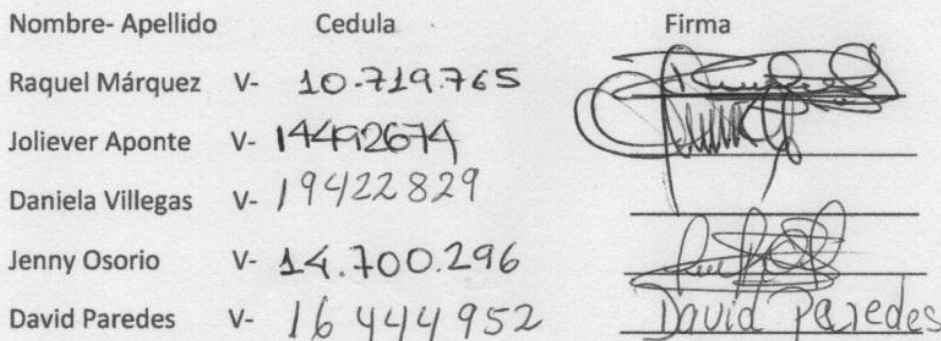 Nombre- Apellido Cedula Firma
Raquel Márquez V- 10.719.765
Joliever Aponte V- 14492674
Daniela Villegas V- 19422829
Jenny Osorio V- 14.700.296
David Paredes V- 16 444 952 David Paredes